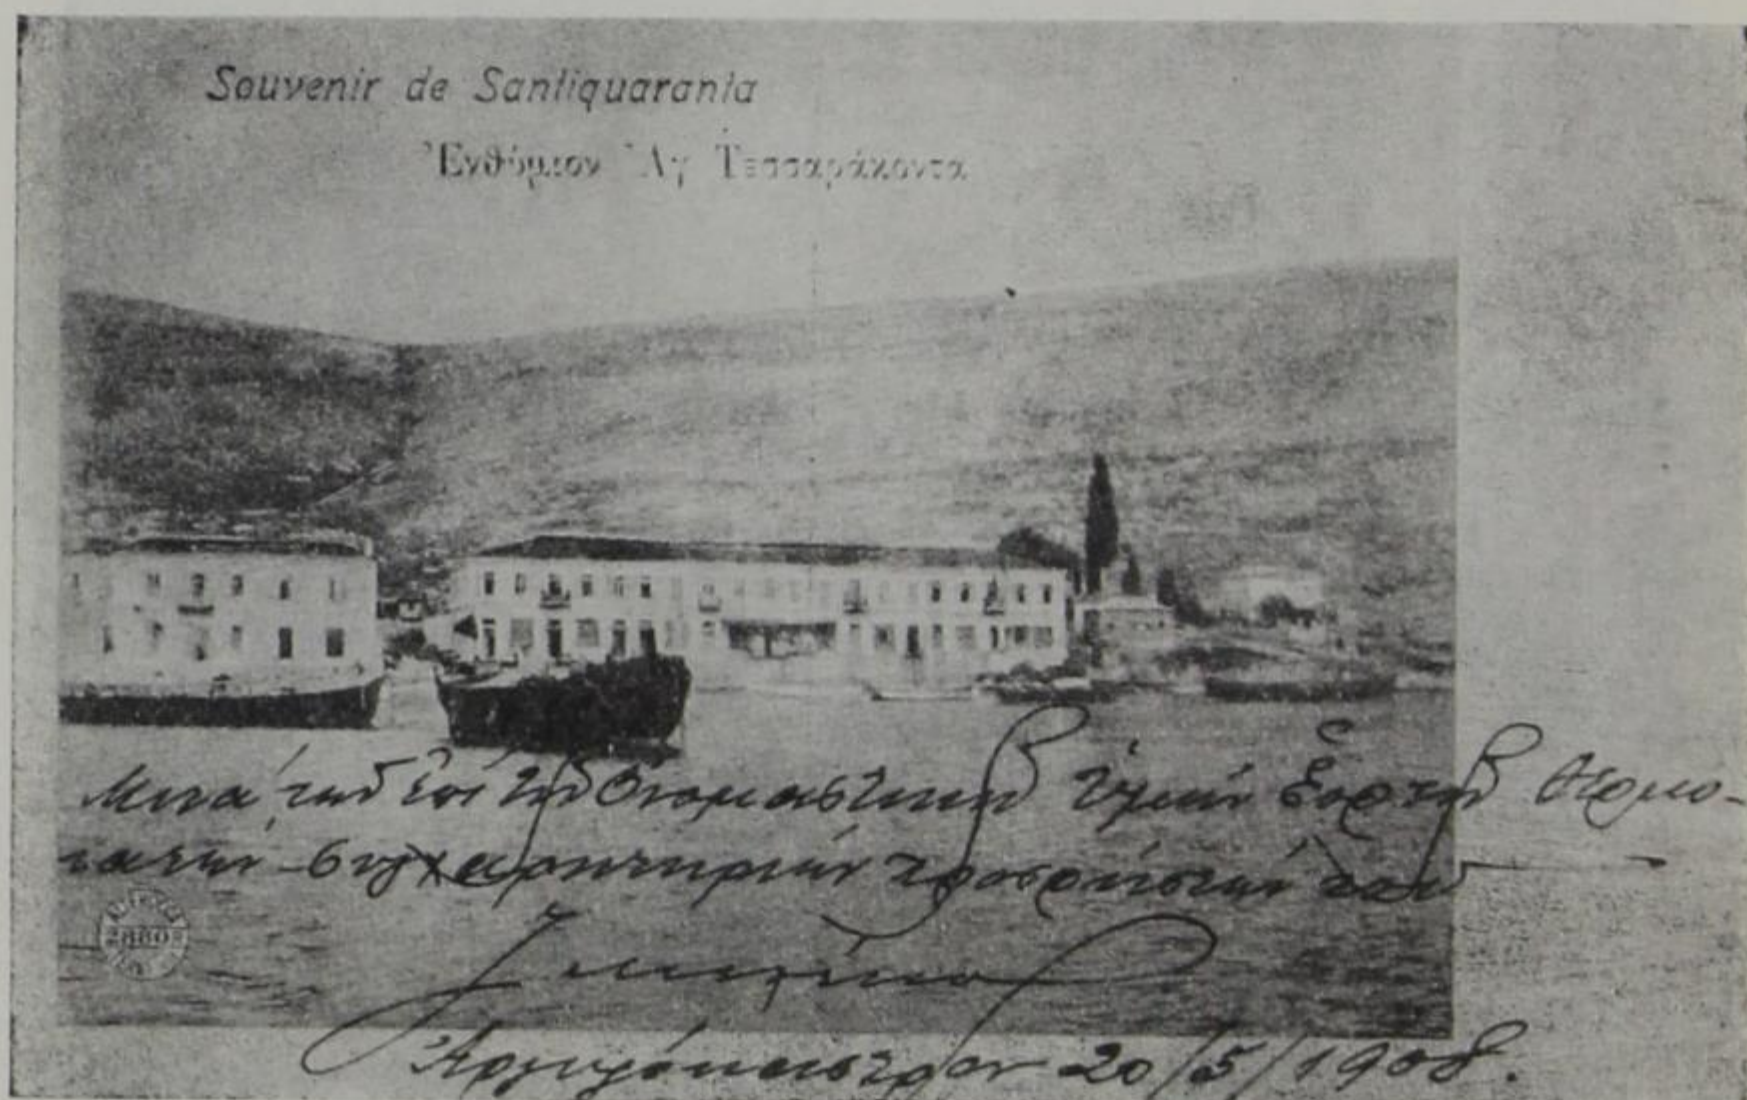 Souvenir de Santiquaranta
Ἐνθύμιον Ἁγ Τεσσαράκοντα
Μετὰ τῶν ἐπὶ τῇ ὀνομαστικῇ ὑμῶν ἑορτῇ θερμο-
τάτων συγχαρητηρίων προσρήσεων
Ἀργυρόκαστρον 20/5/1908.